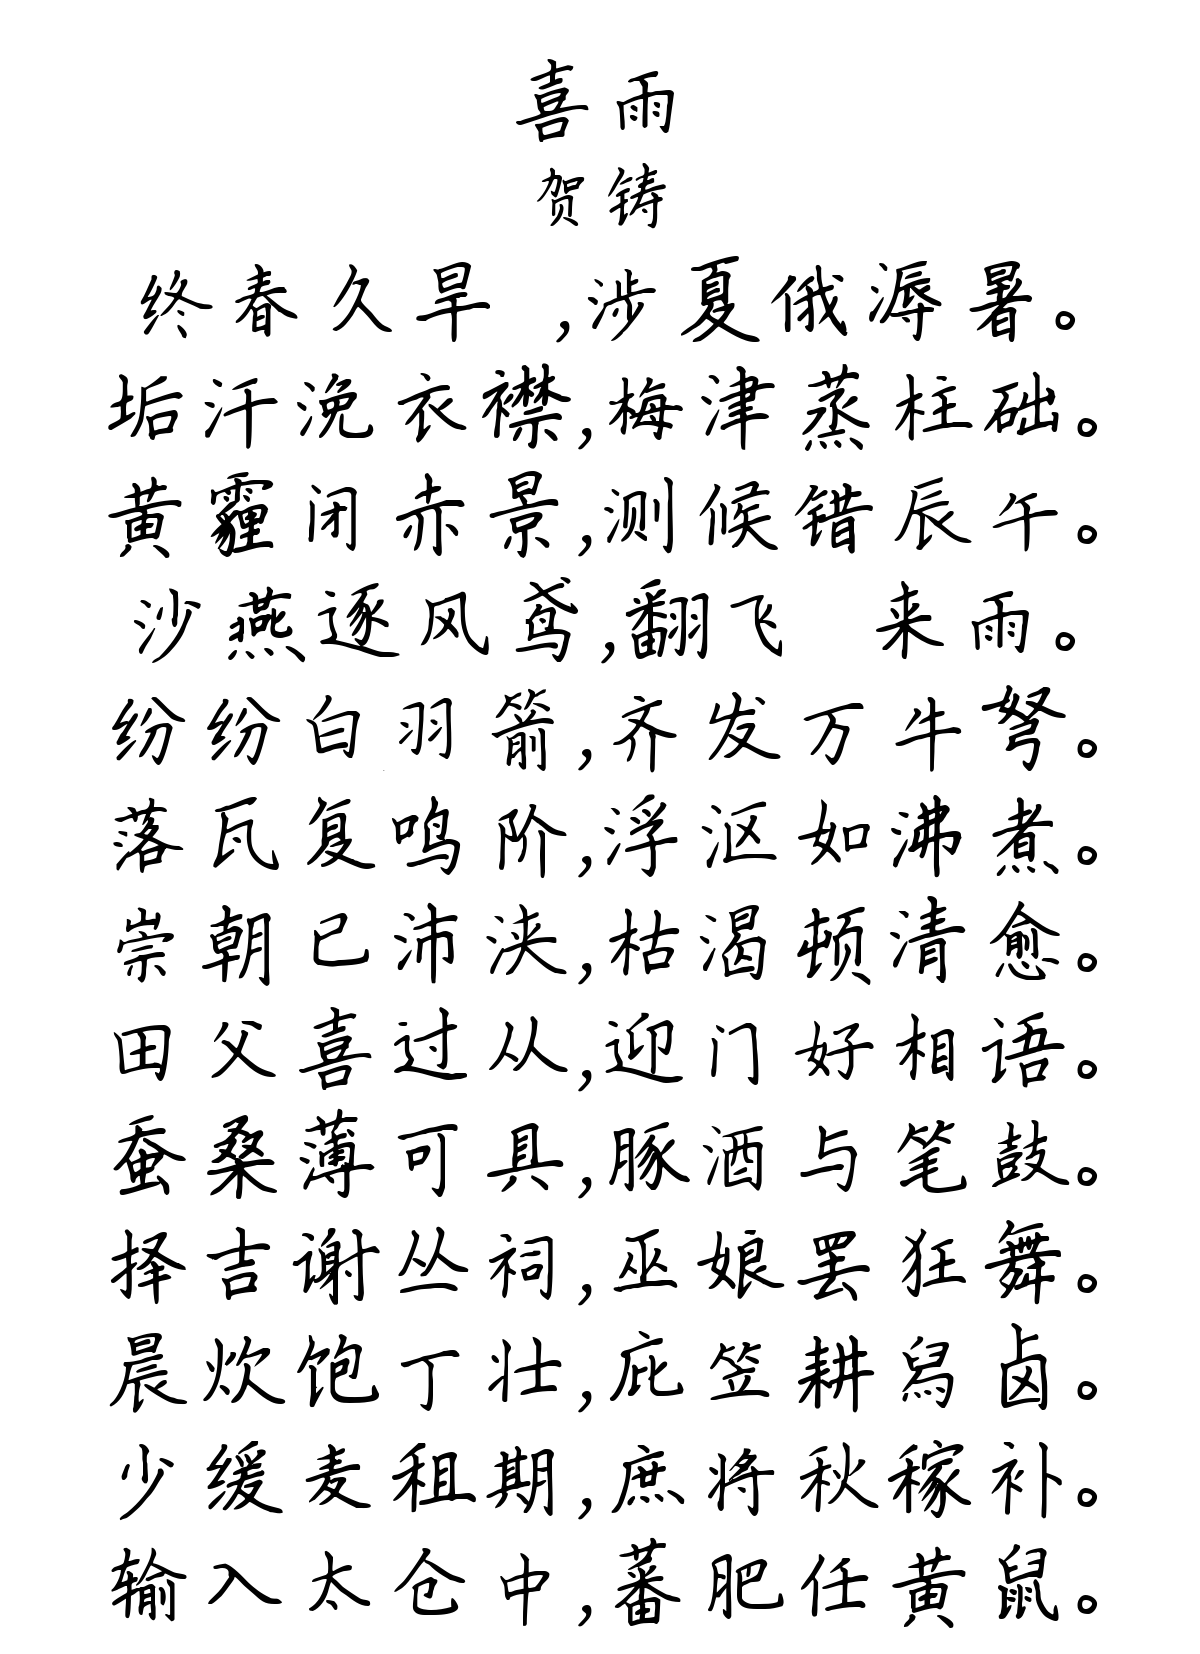 喜雨
贺铸
终春久旱 ,涉夏俄溽暑。
垢汗浼衣襟,梅津蒸柱础。
黄霾闭赤景,测候错辰午。
沙燕逐风鸢,翻飞 来雨。
纷纷白羽箭,齐发万牛弩。
落瓦复鸣阶,浮沤如沸煮。
崇朝已沛浃,枯渴顿清愈。
田父喜过从,迎门好相语。
蚕桑薄可具,豚酒与笔鼓。
择吉谢丛祠,巫娘罢狂舞。
晨炊饱丁壮,庇笠耕舄卤。
少缓麦租期,庶将秋稼补。
输入太仓中,蕃肥任黄鼠。